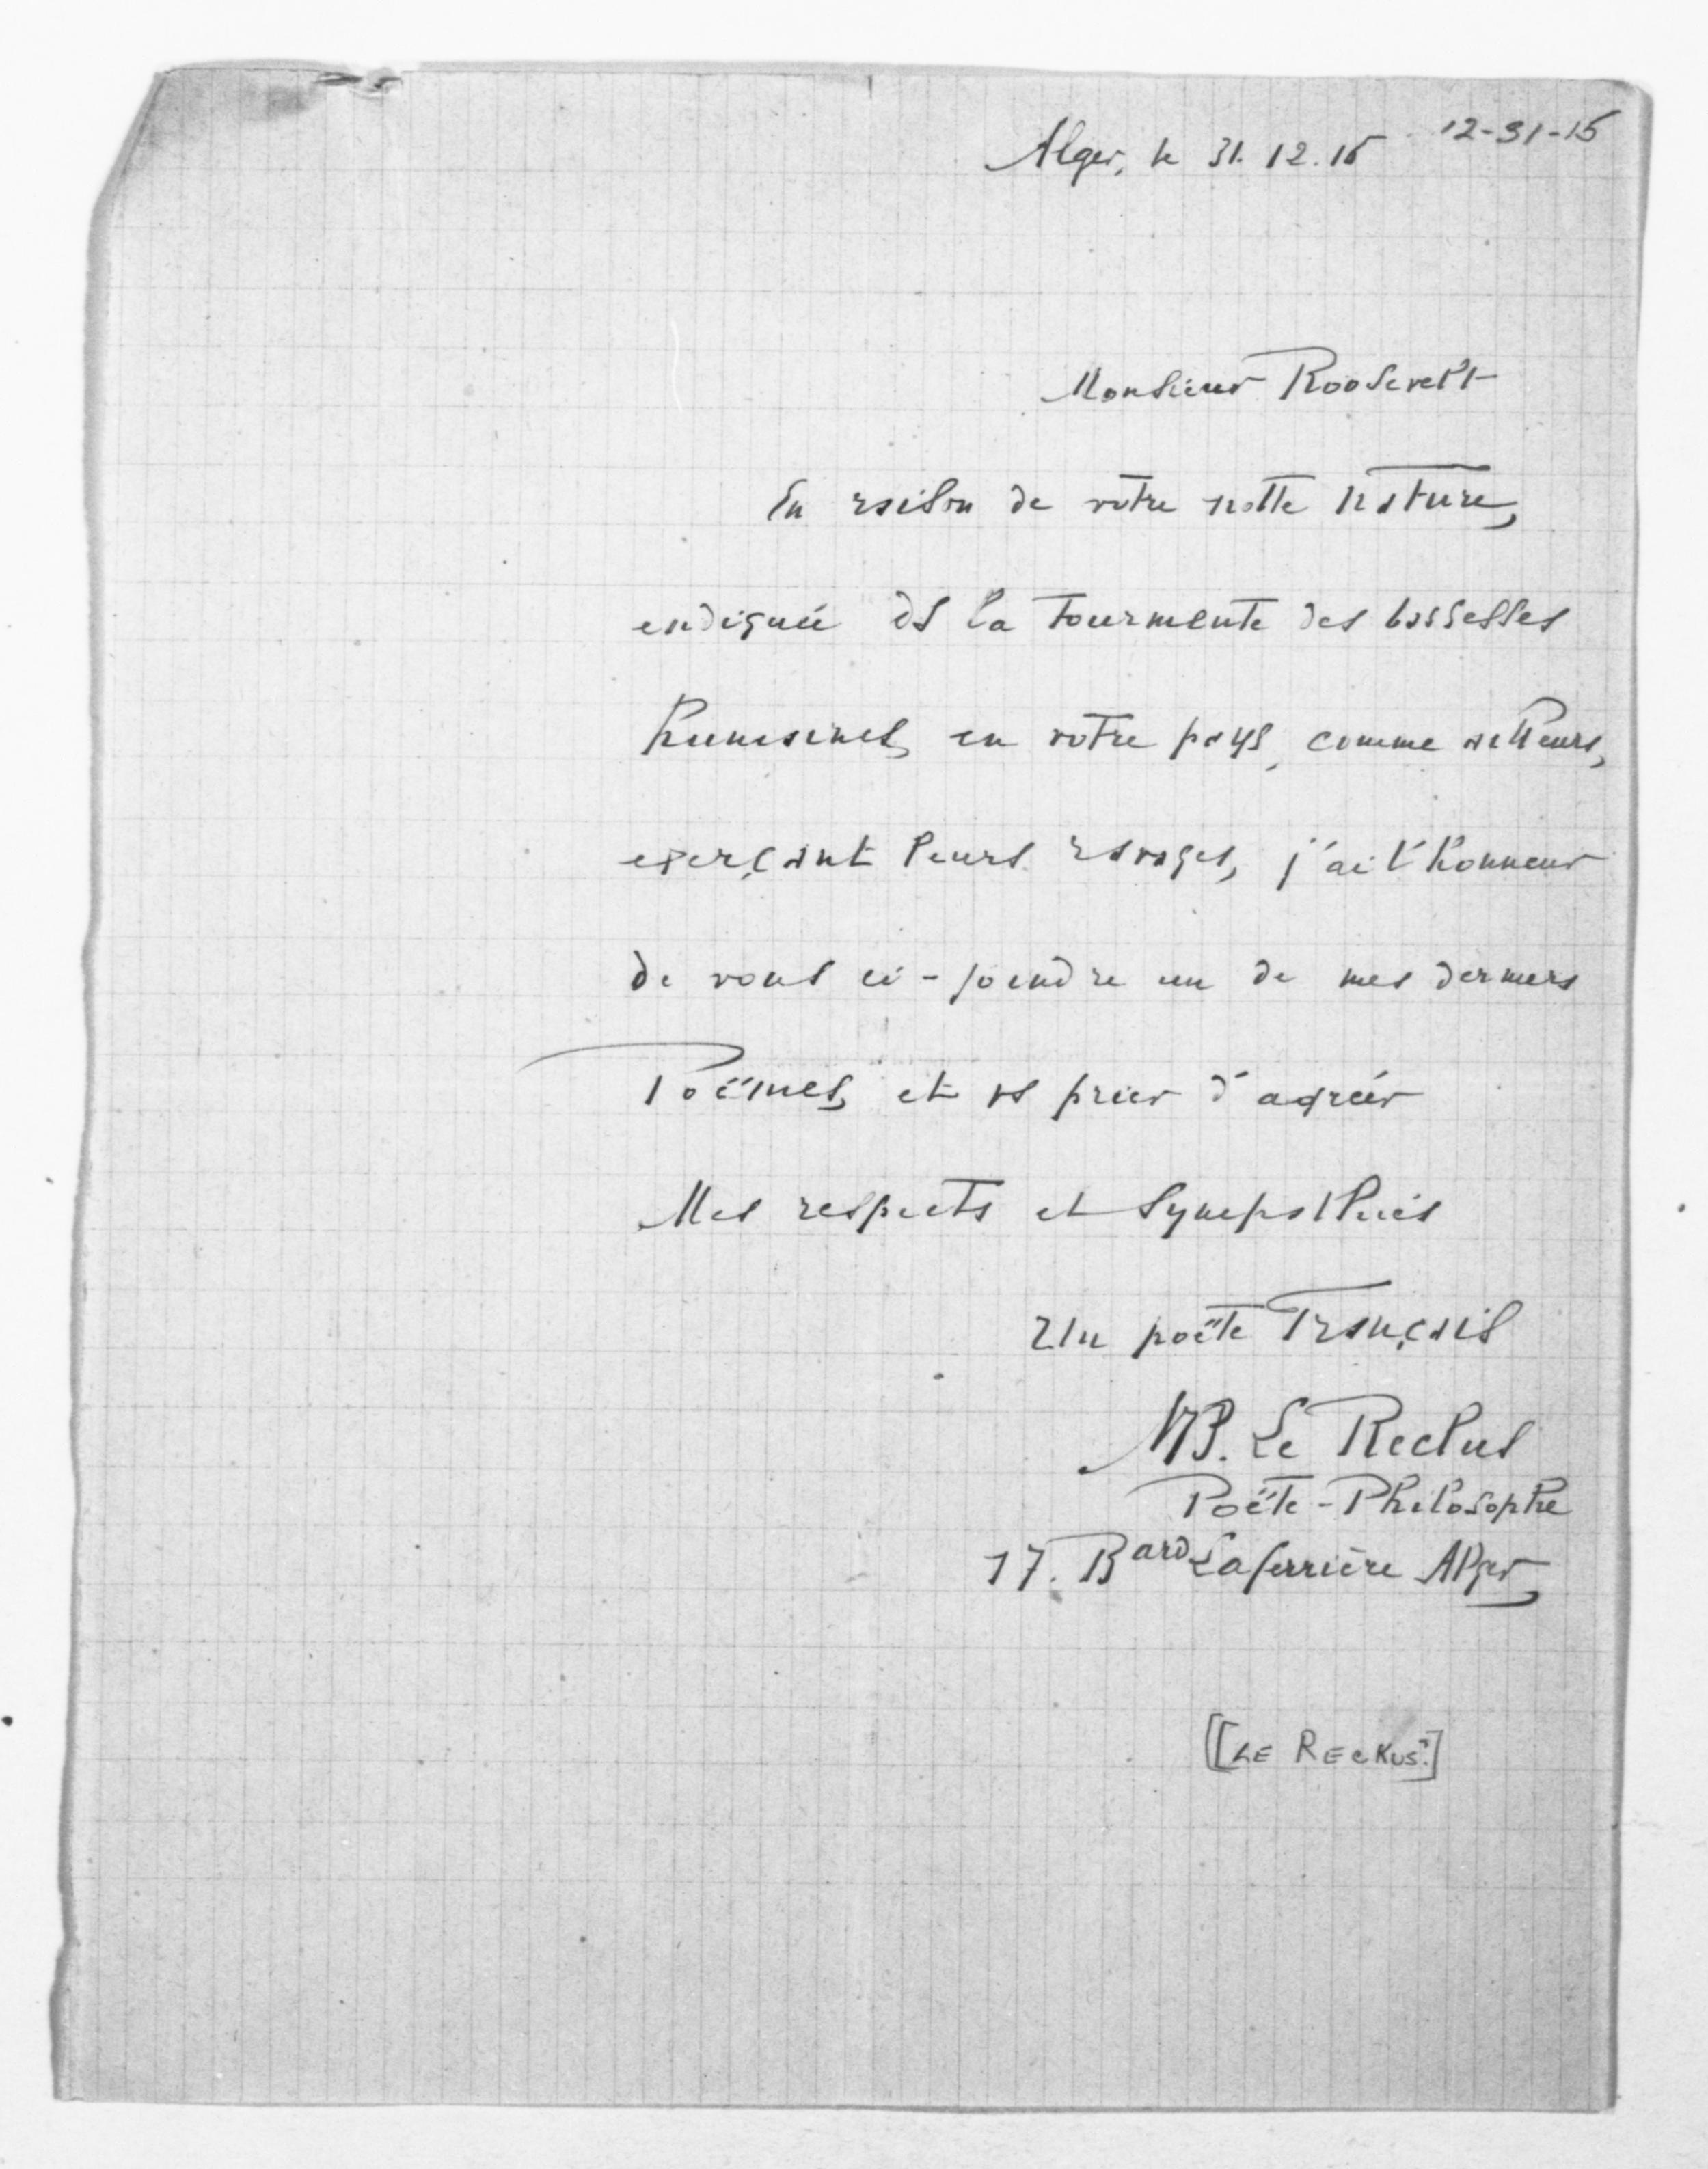 12-31-15
Alger, le 31.12.15
Monsieur Roosevelt
En raison de votre nette nature,
endiguée ds la tourmente des bassesses
humaines, en votre pays, comme ailleurs,
exerçant leurs ravages, j'ai l'honneur
de vous ci-joindre un de mes derniers
Poëmes, et vs prier d'agréer
Mes respects et sympathies
Un poëte Français
MB. Le Reclus
Poëte-Philosophe
17. Bard Laferrière Alger
[[LE RECKUS?]